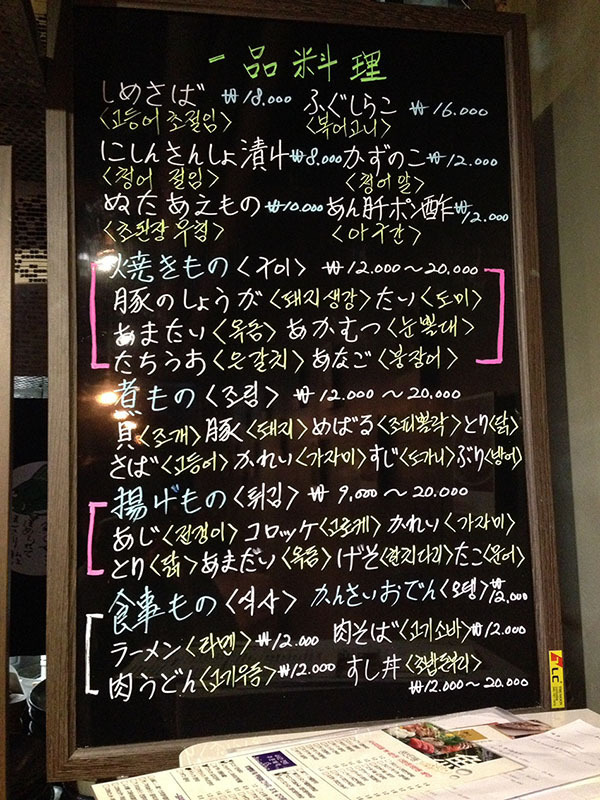 一品料理
しめさば ₩18.000 ふぐしらこ ₩16.000
<고등어 초절임> <복어고니>
にしんさんしょ漬け ₩8.000 かずのこ ₩12.000
<청어 절임> <청어알>
ぬたあえもの ₩10.000 あん肝ポン酢 ₩12.000
<초된장무침> <아구간>
焼きもの <구이> ₩12.000～20.000
豚のしょうが <돼지생강> たい <도미>
あまたい <옥돔> あかむつ <눈뽈대>
たちうお <은갈치> あなご <붕장어>
煮もの <조림> ₩12.000～20.000
貝 <조개> 豚 <돼지> めばる <조피뽈락> とり <닭>
さば <고등어> かれい <가자미> すじ <도가니> ぶり <방어>
揚げもの <튀김> ₩9,000～20.000
あじ <전갱이> コロッケ <고로케> かれい <가자미>
とり <닭> あまだい <옥돔> げそ <한치다리> たこ <문어>
食事もの <식사> かんさいおでん <오뎅> ₩12,000
ラーメン <라멘> ₩12.000 肉そば <고기소바> ₩12.000
肉うどん <고기우동> ₩12.000 すし丼
₩12.000～20.000
LC